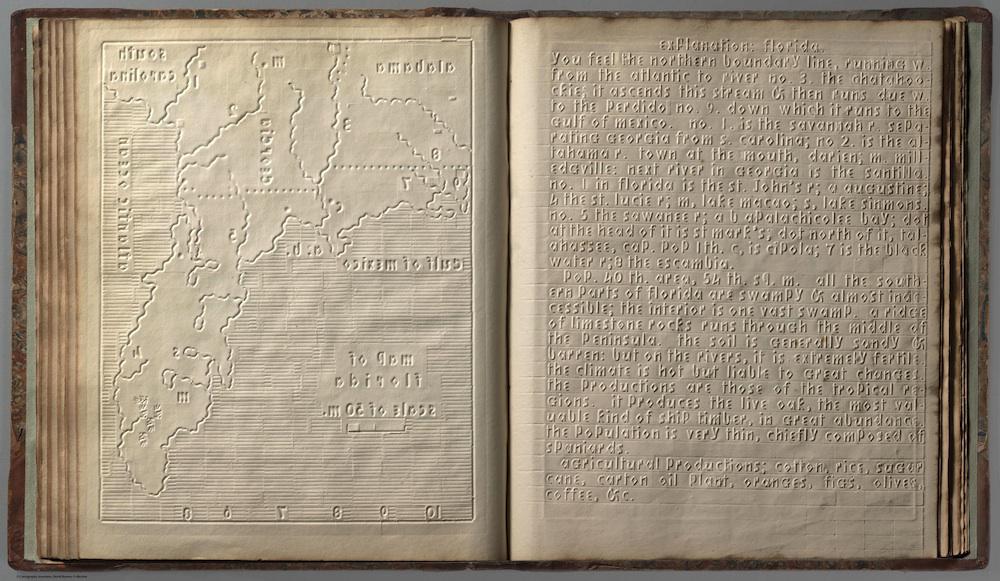 south
carolina
m
alabama
1
2
3
georgia
atlantic ocean
8
9
7
c
5
a. b.
gulf of mexico
4
os
m
map of
florida
scale of 50 m.
8 6 7 9 10
explanation: florida.
you feel the northern boundary line, running w.
from the atlantic to river no. 3. the chatahoo-
chie; it ascends this stream & then runs due w.
to the perdido, no. 9. down which it runs to the
gulf of mexico. no. 1. is the savannah r. sepa-
rating georgia from s. carolina; no 2. is the al-
tahama r. town at the mouth, darien; m. mill-
edgville: next river in georgia is the santilla.
no. 1 in florida is the st. john's r; a augustine;
4 the st. lucie r; m, lake macao; s, lake simmons.
no. 5 the sawanee r; a b apalachicolee bay; dot
at the head of it is st mark's; dot north of it, tal-
ahassee, cap. pop 1th. c, is cipola; 7 is the black
water r; 8 the escambia.
pop. 40 th. area, 54 th. sq. m. all the south-
ern parts of florida are swampy & almost inac-
cessible; the interior is one vast swamp. a ridge
of limestone rocks runs through the middle of
the peninsula. the soil is generally sandy &
barren: but on the rivers, it is extremely fertile.
the climate is hot but liable to great changes.
the productions are those of the tropical re-
gions. it produces the live oak, the most val-
uable kind of ship timber, in great abundance.
the population is very thin, chiefly composed of
spaniards.
agricultural productions; cotton, rice, sugar
cane, carton oil plant, oranges, figs, olives,
coffee, &c.